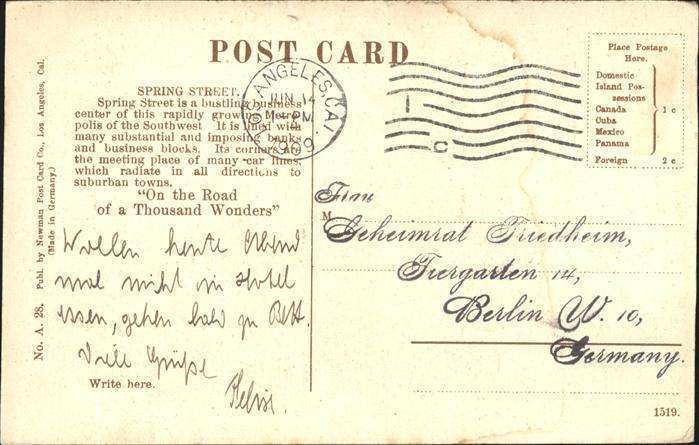 POST CARD
SPRING STREET.
Spring Street is a bustling business
center of this rapidly growing Metro-
polis of the Southwest. It is lined with
many substantial and imposing banks
and business blocks. Its corners are
the meeting place of many car lines,
which radiate in all directions to
suburban towns.
"On the Road
of a Thousand Wonders"
Wollen heute Abend
mal nicht im Hotel
essen, gehen bald zu Bett.
Viele Grüße
Write here.
No. A. 28. Publ. by Newman Post Card Co., Los Angeles, Cal.
(Made in Germany.)
ANGELES, CAL.
JUN 14
PM
1909
Place Postage
Here.
Domestic
Island Pos-
sessions
Canada
Cuba
Mexico
Panama
1 c
Foreign 2 c
Frau
M
Geheimrat Friedheim,
Tiergarten 14,
Berlin W. 10,
Germany.
1519.